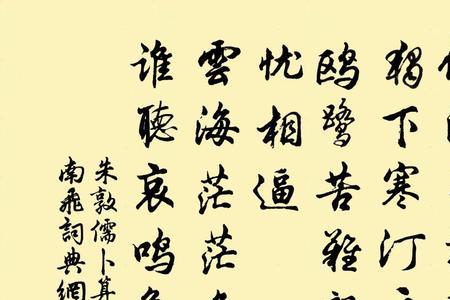 獨下寒汀
鸥鹭苦難
忧相逼
雲海茫茫
谁聽哀鸣
朱敦儒卜算
南飛詞典網